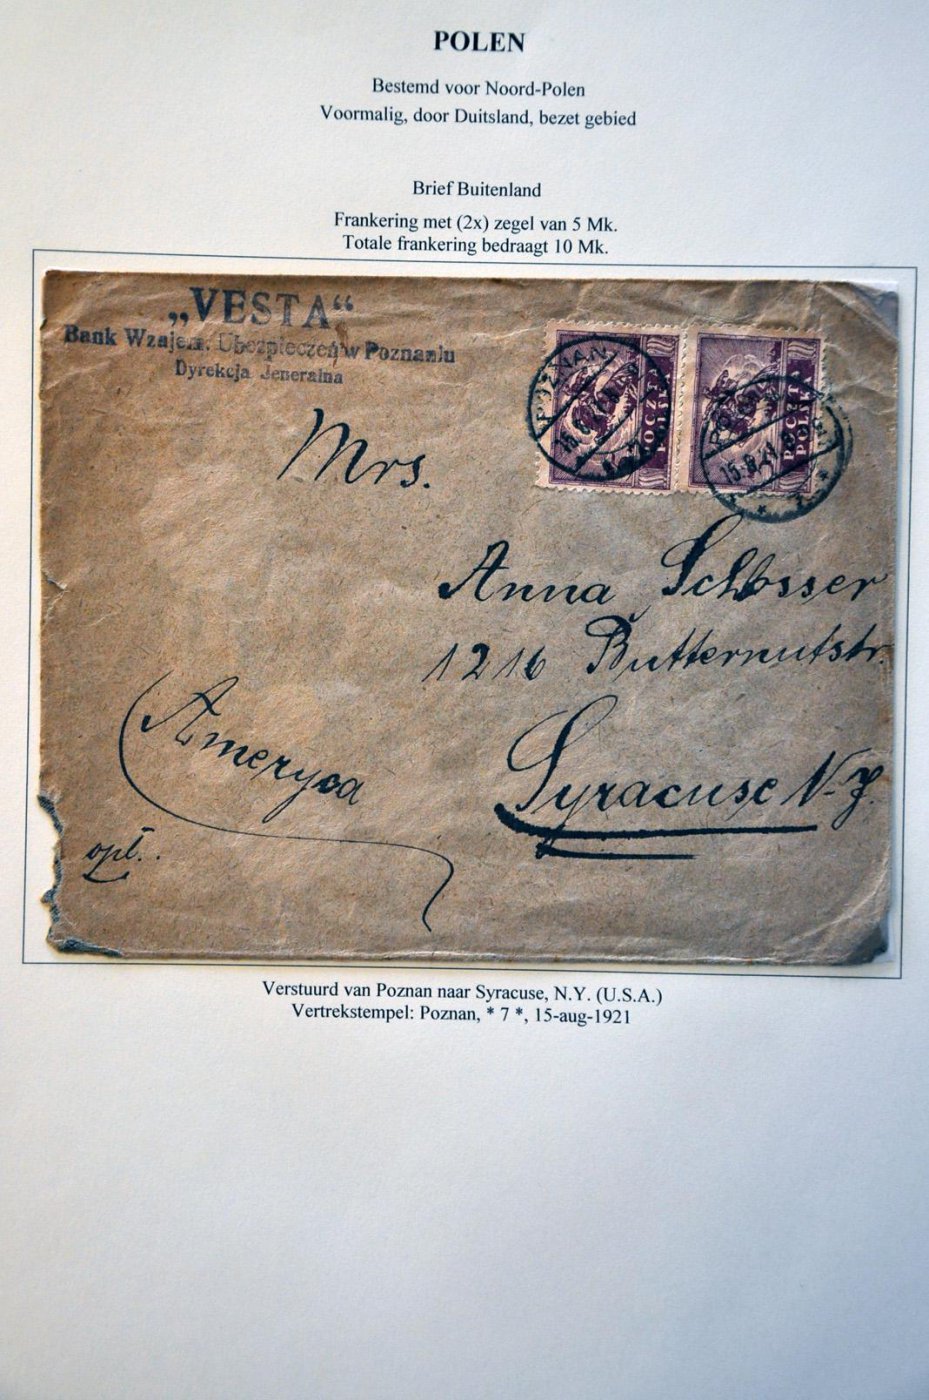 POLEN
Bestemd voor Noord-Polen
Voormalig, door Duitsland, bezet gebied
Brief Buitenland
Frankering met (2x) zegel van 5 Mk.
Totale frankering bedraagt 10 Mk.
„VESTA“
Bank Wzajem. Ubezpieczeń w Poznaniu
Dyrekcja Jeneralna
POZNAŃ
15.8.21
POCZTA
POLSKA
POCZTA
POLSKA
15.8.21
* 7 *
Mrs.
Anna Schlosser
1216 Butternutstr.
Ameryca
Syracuse N-Y.
opł.
Verstuurd van Poznan naar Syracuse, N.Y. (U.S.A.)
Vertrekstempel: Poznan, * 7 *, 15-aug-1921